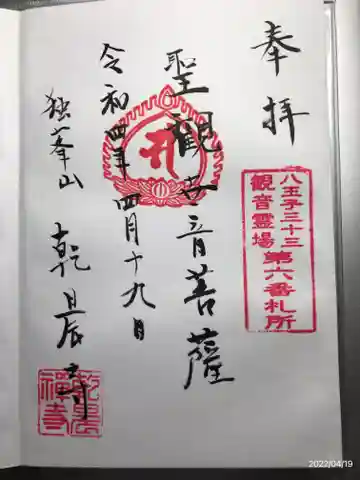 奉拝
八王子三十三
観音霊場
第六番札所
聖観世音菩薩
令和四年四月十九日
独峯山 乾晨寺
乾晨
禅寺
2022/04/19